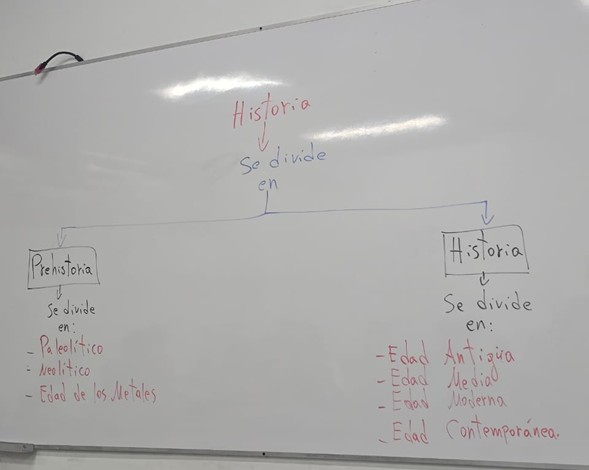 Historia
Se divide
en
Prehistoria
Se divide
en:
- Paleolítico
- Neolítico
- Edad de los Metales
Historia
Se divide
en:
- Edad Antigüa
- Edad Media
- Edad Moderna
- Edad Contemporánea.